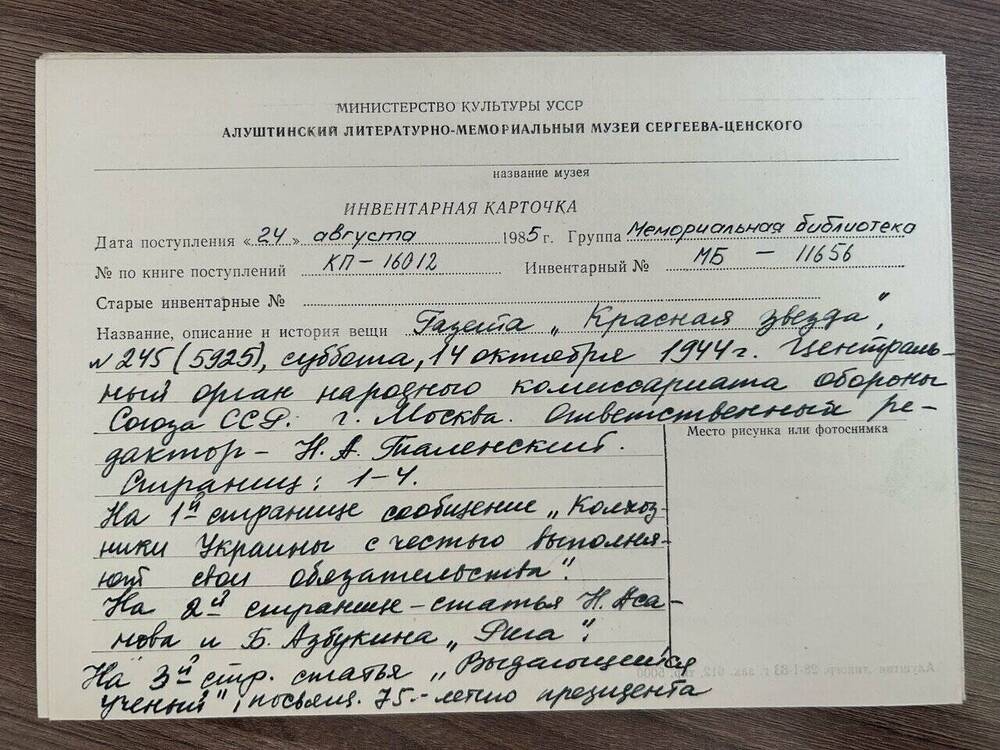 МИНИСТЕРСТВО КУЛЬТУРЫ УССР
АЛУШТИНСКИЙ ЛИТЕРАТУРНО-МЕМОРИАЛЬНЫЙ МУЗЕЙ СЕРГЕЕВА-ЦЕНСКОГО
название музея
ИНВЕНТАРНАЯ КАРТОЧКА
Дата поступления «24» августа 1985 г. Группа Мемориальная библиотека
№ по книге поступлений КП-16012 Инвентарный № МБ - 11656
Старые инвентарные №
Название, описание и история вещи Газета „Красная звезда",
№ 245 (5925), суббота, 14 октября 1944 г. Централь-
ный орган народного комиссариата обороны
Союза ССР. г. Москва. Ответственный ре-
дактор - Н. А. Таленский.
Место рисунка или фотоснимка
Страниц: 1-4.
На 1й странице сообщение „Колхоз-
ники Украины с честью выполня-
ют свои обязательства".
На 2й странице - статья Н. Аса-
нова и Б. Азбукина „Рига".
На 3й стр. статья „Выдающийся
ученый", посвящ. 75-летию президента